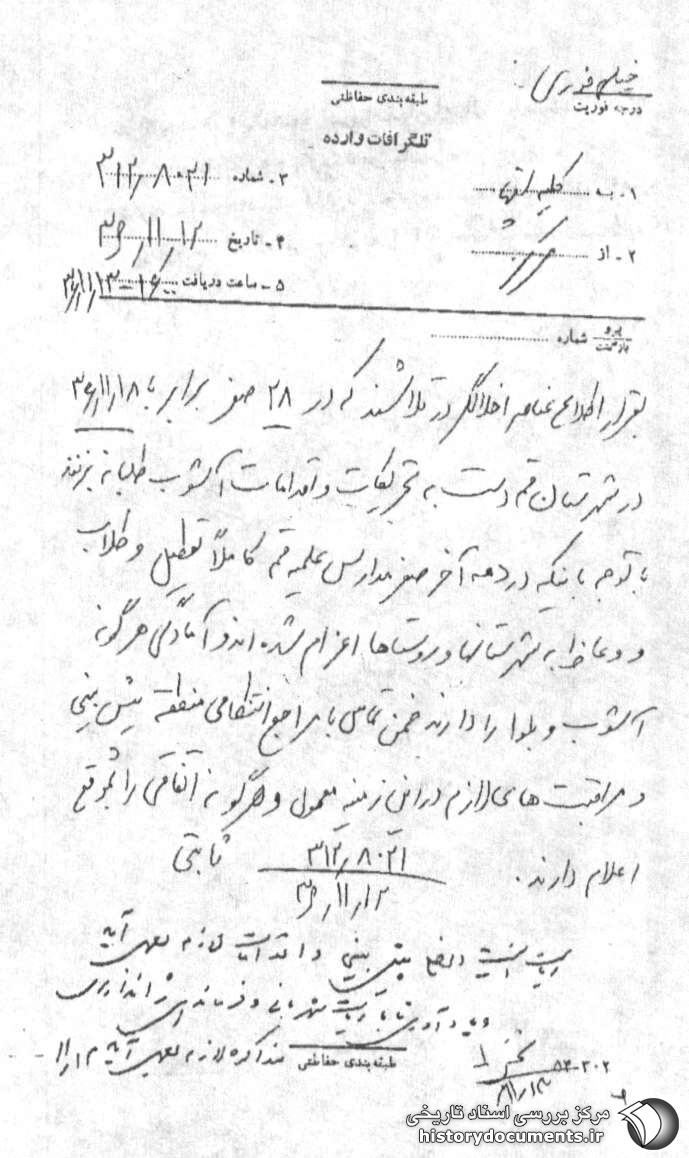 خیلی فوری
درجه فوریت
طبقه‌بندی حفاظتی
تلگرافات وارده
۱- به کلیه
۳- شماره ۳۱۲/۸۰۲۱
۲- از مرکز
۴- تاریخ ۳۶/۱۱/۱۲
۵- ساعت دریافت
پیرو
بازگشت
شماره
بقرار اطلاع عناصر اخلالگر در تلاشند که در ۲۸ صفر برابر با ۳۶/۱۱/۱۸
در شهرستان قم دست به تحریکات و اقدامات آشوب طلبانه بزنند
با توجه باینکه در دهه آخر صفر مدارس علمیه قم کاملاً تعطیل و طلاب
و وعاظ به شهرستانها و روستاها اعزام شده‌اند و آمادگی هر گونه
آشوب و بلوا را دارند ضمن تماس با مراجع انتظامی منطقه پیش بینی
و مراقبت های لازم در این زمینه معمول و هر گونه اتفاقی را بموقع
اعلام دارند. ۳۱۲/۸۰۲۱ ثابتی
۳۶/۱۱/۱۲
پیش بینی و اقدامات لازم بعمل آید
ریاست شهربانی و فرماندهی ژاندارمری
مذاکره لازم بعمل آید
طبقه‌بندی حفاظتی
۵۲-۳۰۲
مرکز بررسی اسناد تاریخی
historydocuments.ir